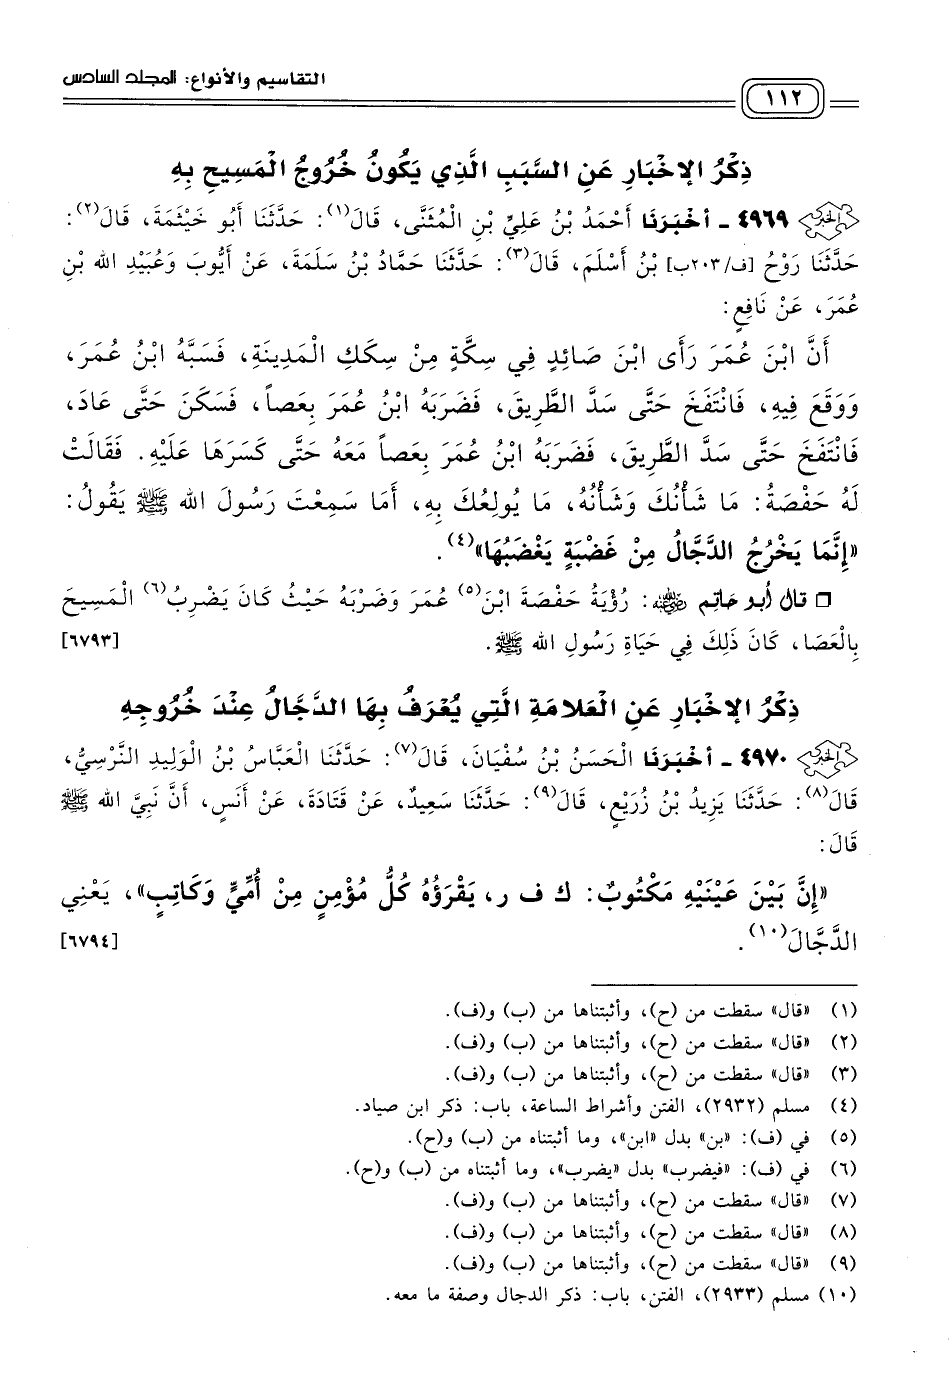 التقاسيم والأنواع: المجلد السادس
١١٢
ذِكْرُ الإخْبَارِ عَنِ السَّبَبِ الَّذِي يَكُونُ خُرُوجُ الْمَسِيحِ بِهِ
٤٩٦٩ ـ أخْبَرَنَا أَحْمَدُ بْنُ عَلِيِّ بْنِ الْمُثَنَّى، قَالَ(١): حَدَّثَنَا أَبُو خَيْثَمَةَ، قَالَ(٢):
حَدَّثَنَا رَوْحُ [ف/٢٠٣ب] بْنُ أَسْلَمَ، قَالَ(٣): حَدَّثَنَا حَمَّادُ بْنُ سَلَمَةَ، عَنْ أَيُّوبَ وَعُبَيْدِ الله بْنِ
عُمَرَ، عَنْ نَافِعٍ:
أَنَّ ابْنَ عُمَرَ رَأَى ابْنَ صَائِدٍ فِي سِكَّةٍ مِنْ سِكَكِ الْمَدِينَةِ، فَسَبَّهُ ابْنُ عُمَرَ،
وَوَقَعَ فِيهِ، فَانْتَفَخَ حَتَّى سَدَّ الطَّرِيقَ، فَضَرَبَهُ ابْنُ عُمَرَ بِعَصاً، فَسَكَنَ حَتَّى عَادَ،
فَانْتَفَخَ حَتَّى سَدَّ الطَّرِيقَ، فَضَرَبَهُ ابْنُ عُمَرَ بِعَصاً مَعَهُ حَتَّى كَسَرَهَا عَلَيْهِ. فَقَالَتْ
لَهُ حَفْصَةُ: مَا شَأْنُكَ وَشَأْنُهُ، مَا يُولِعُكَ بِهِ، أَمَا سَمِعْتَ رَسُولَ الله ﷺ يَقُولُ:
«إِنَّمَا يَخْرُجُ الدَّجَّالُ مِنْ غَضْبَةٍ يَغْضَبُهَا»(٤).
❒ قال أبو حاتم رضي الله عنه: رُؤْيَةُ حَفْصَةَ ابْنَ(٥) عُمَرَ وَضَرْبَهُ حَيْثُ كَانَ يَضْرِبُ(٦) الْمَسِيحَ
بِالْعَصَا، كَانَ ذَلِكَ فِي حَيَاةِ رَسُولِ الله ﷺ. [٦٧٩٣]
ذِكْرُ الإخْبَارِ عَنِ الْعَلَامَةِ الَّتِي يُعْرَفُ بِهَا الدَّجَّالُ عِنْدَ خُرُوجِهِ
٤٩٧٠ ـ أخْبَرَنَا الْحَسَنُ بْنُ سُفْيَانَ، قَالَ(٧): حَدَّثَنَا الْعَبَّاسُ بْنُ الْوَلِيدِ النَّرْسِيُّ،
قَالَ(٨): حَدَّثَنَا يَزِيدُ بْنُ زُرَيْعٍ، قَالَ(٩): حَدَّثَنَا سَعِيدٌ، عَنْ قَتَادَةَ، عَنْ أَنَسٍ، أَنَّ نَبِيَّ الله ﷺ
قَالَ:
«إِنَّ بَيْنَ عَيْنَيْهِ مَكْتُوبٌ: ك ف ر، يَقْرَؤُهُ كُلُّ مُؤْمِنٍ مِنْ أُمِّيٍّ وَكَاتِبٍ»، يَعْنِي
الدَّجَّالَ(١٠). [٦٧٩٤]
(١) «قال» سقطت من (ح)، وأثبتناها من (ب) و(ف).
(٢) «قال» سقطت من (ح)، وأثبتناها من (ب) و(ف).
(٣) «قال» سقطت من (ح)، وأثبتناها من (ب) و(ف).
(٤) مسلم (٢٩٣٢)، الفتن وأشراط الساعة، باب: ذكر ابن صياد.
(٥) في (ف): «بن» بدل «ابن»، وما أثبتناه من (ب) و(ح).
(٦) في (ف): «فيضرب» بدل «يضرب»، وما أثبتناه من (ب) و(ح).
(٧) «قال» سقطت من (ح)، وأثبتناها من (ب) و(ف).
(٨) «قال» سقطت من (ح)، وأثبتناها من (ب) و(ف).
(٩) «قال» سقطت من (ح)، وأثبتناها من (ب) و(ف).
(١٠) مسلم (٢٩٣٣)، الفتن، باب: ذكر الدجال وصفة ما معه.